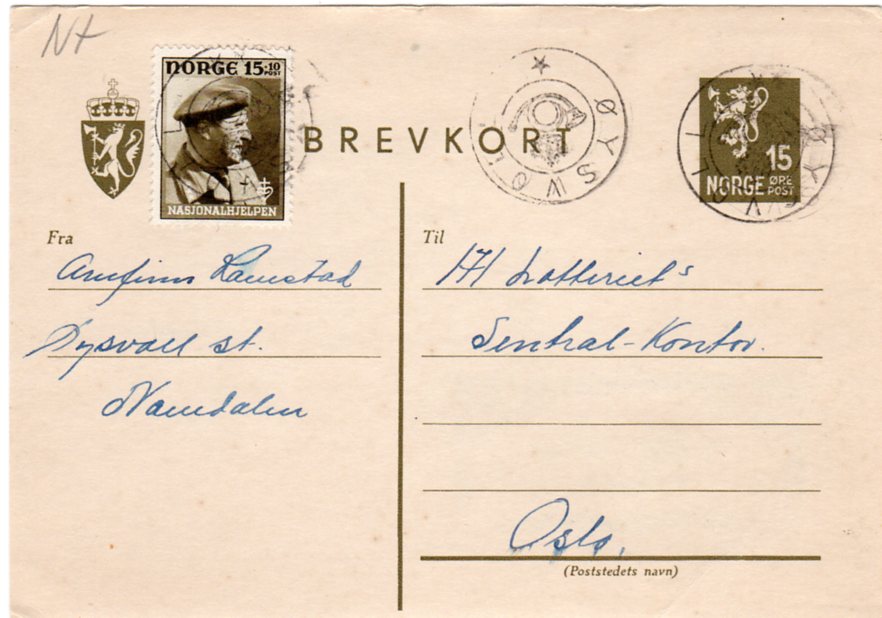 N+
NORGE 15+10
POST
NASJONALHJELPEN
BREVKORT
15
NORGE ØRE
POST
Fra
Arnfinn
st.
Namdalen
Til
Lotteriet's
Sentral-Kontor.
Oslo,
(Poststedets navn)